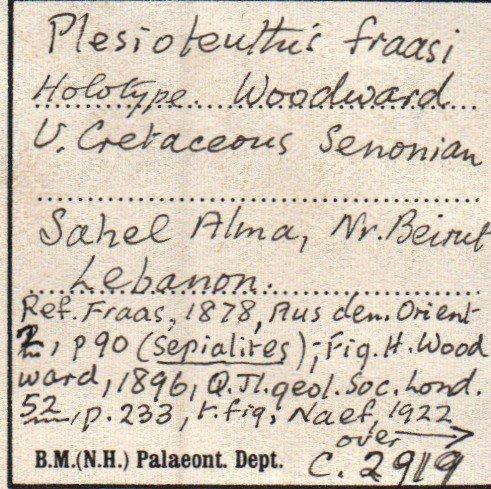 Plesioteuthis fraasi
Holotype Woodward
U. Cretaceous Senonian
Sahel Alma, Nr. Beirut
Lebanon.
Ref. Fraas, 1878, Aus dem. Orient
2, p90 (Sepialites); Fig. H. Wood
ward, 1896, Q.Jl. geol. Soc. Lond.
52, p. 233, t. fig; Naef, 1922
over →
B.M.(N.H.) Palaeont. Dept. C. 2919